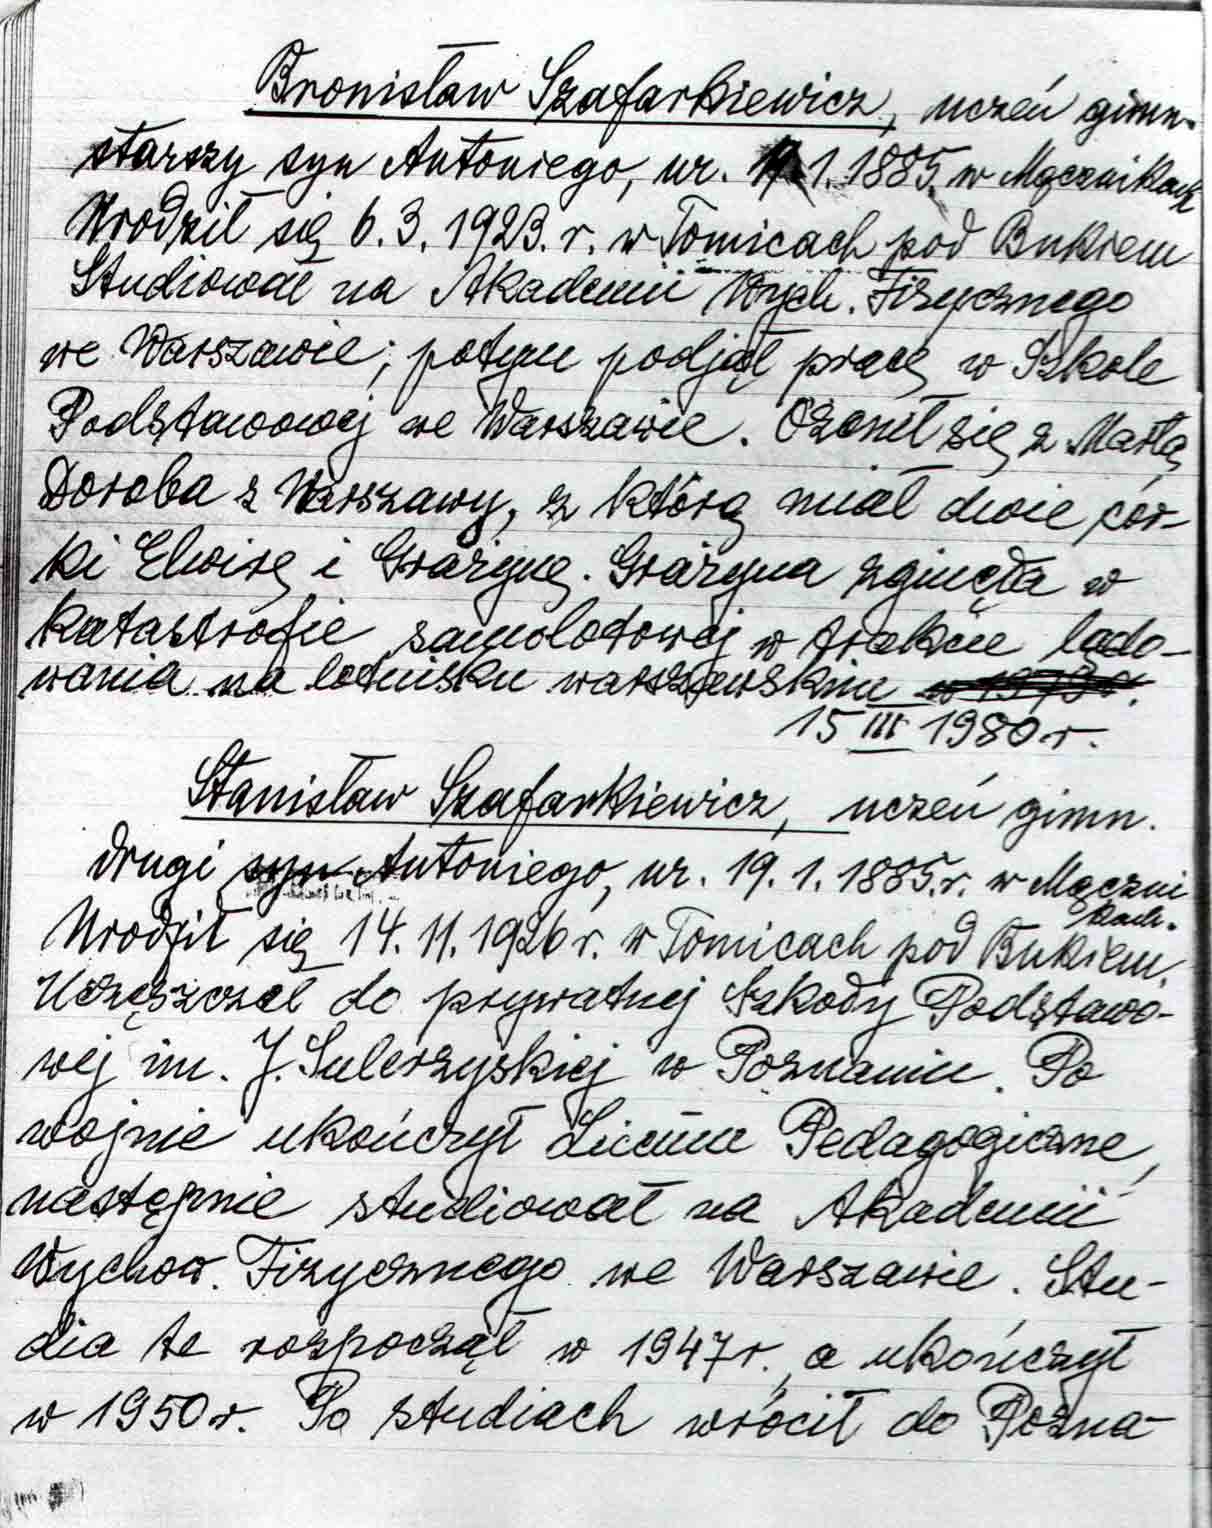 Bronisław Szafarkiewicz, uczeń gimn.
starszy syn Antoniego, ur. 1.1885. w Mącznikach
Urodził się 6.3.1923.r. w Tomicach pod Bukiem
Studiował na Akademii Wych. Fizycznego
we Warszawie; potym podjął pracę w Szkole
Podstawowej we Warszawie. Ożenił się z Martą
Doroba z Warszawy, z którą miał dwie cór-
ki Elwirę i Grażynę. Grażyna zginęła w
katastrofie samolotowej w trakcie lądo-
wania na lotnisku warszawskim
15 III 1980 r.
Stanisław Szafarkiewicz, uczeń gimn.
drugi syn Antoniego, ur. 19.1.1885.r. w Mączni
kach.
Urodził się 14.11.1926 r. w Tomicach pod Bukiem.
Uczęszczał do prywatnej Szkoły Podstawo-
wej im. J. Sulerzyskiej w Poznaniu. Po
wojnie ukończył Liceum Pedagogiczne,
następnie studiował na Akademii
Wychow. Fizycznego we Warszawie. Stu-
dia te rozpoczął w 1947 r., a ukończył
w 1950 r. Po studiach wrócił do Pozna-